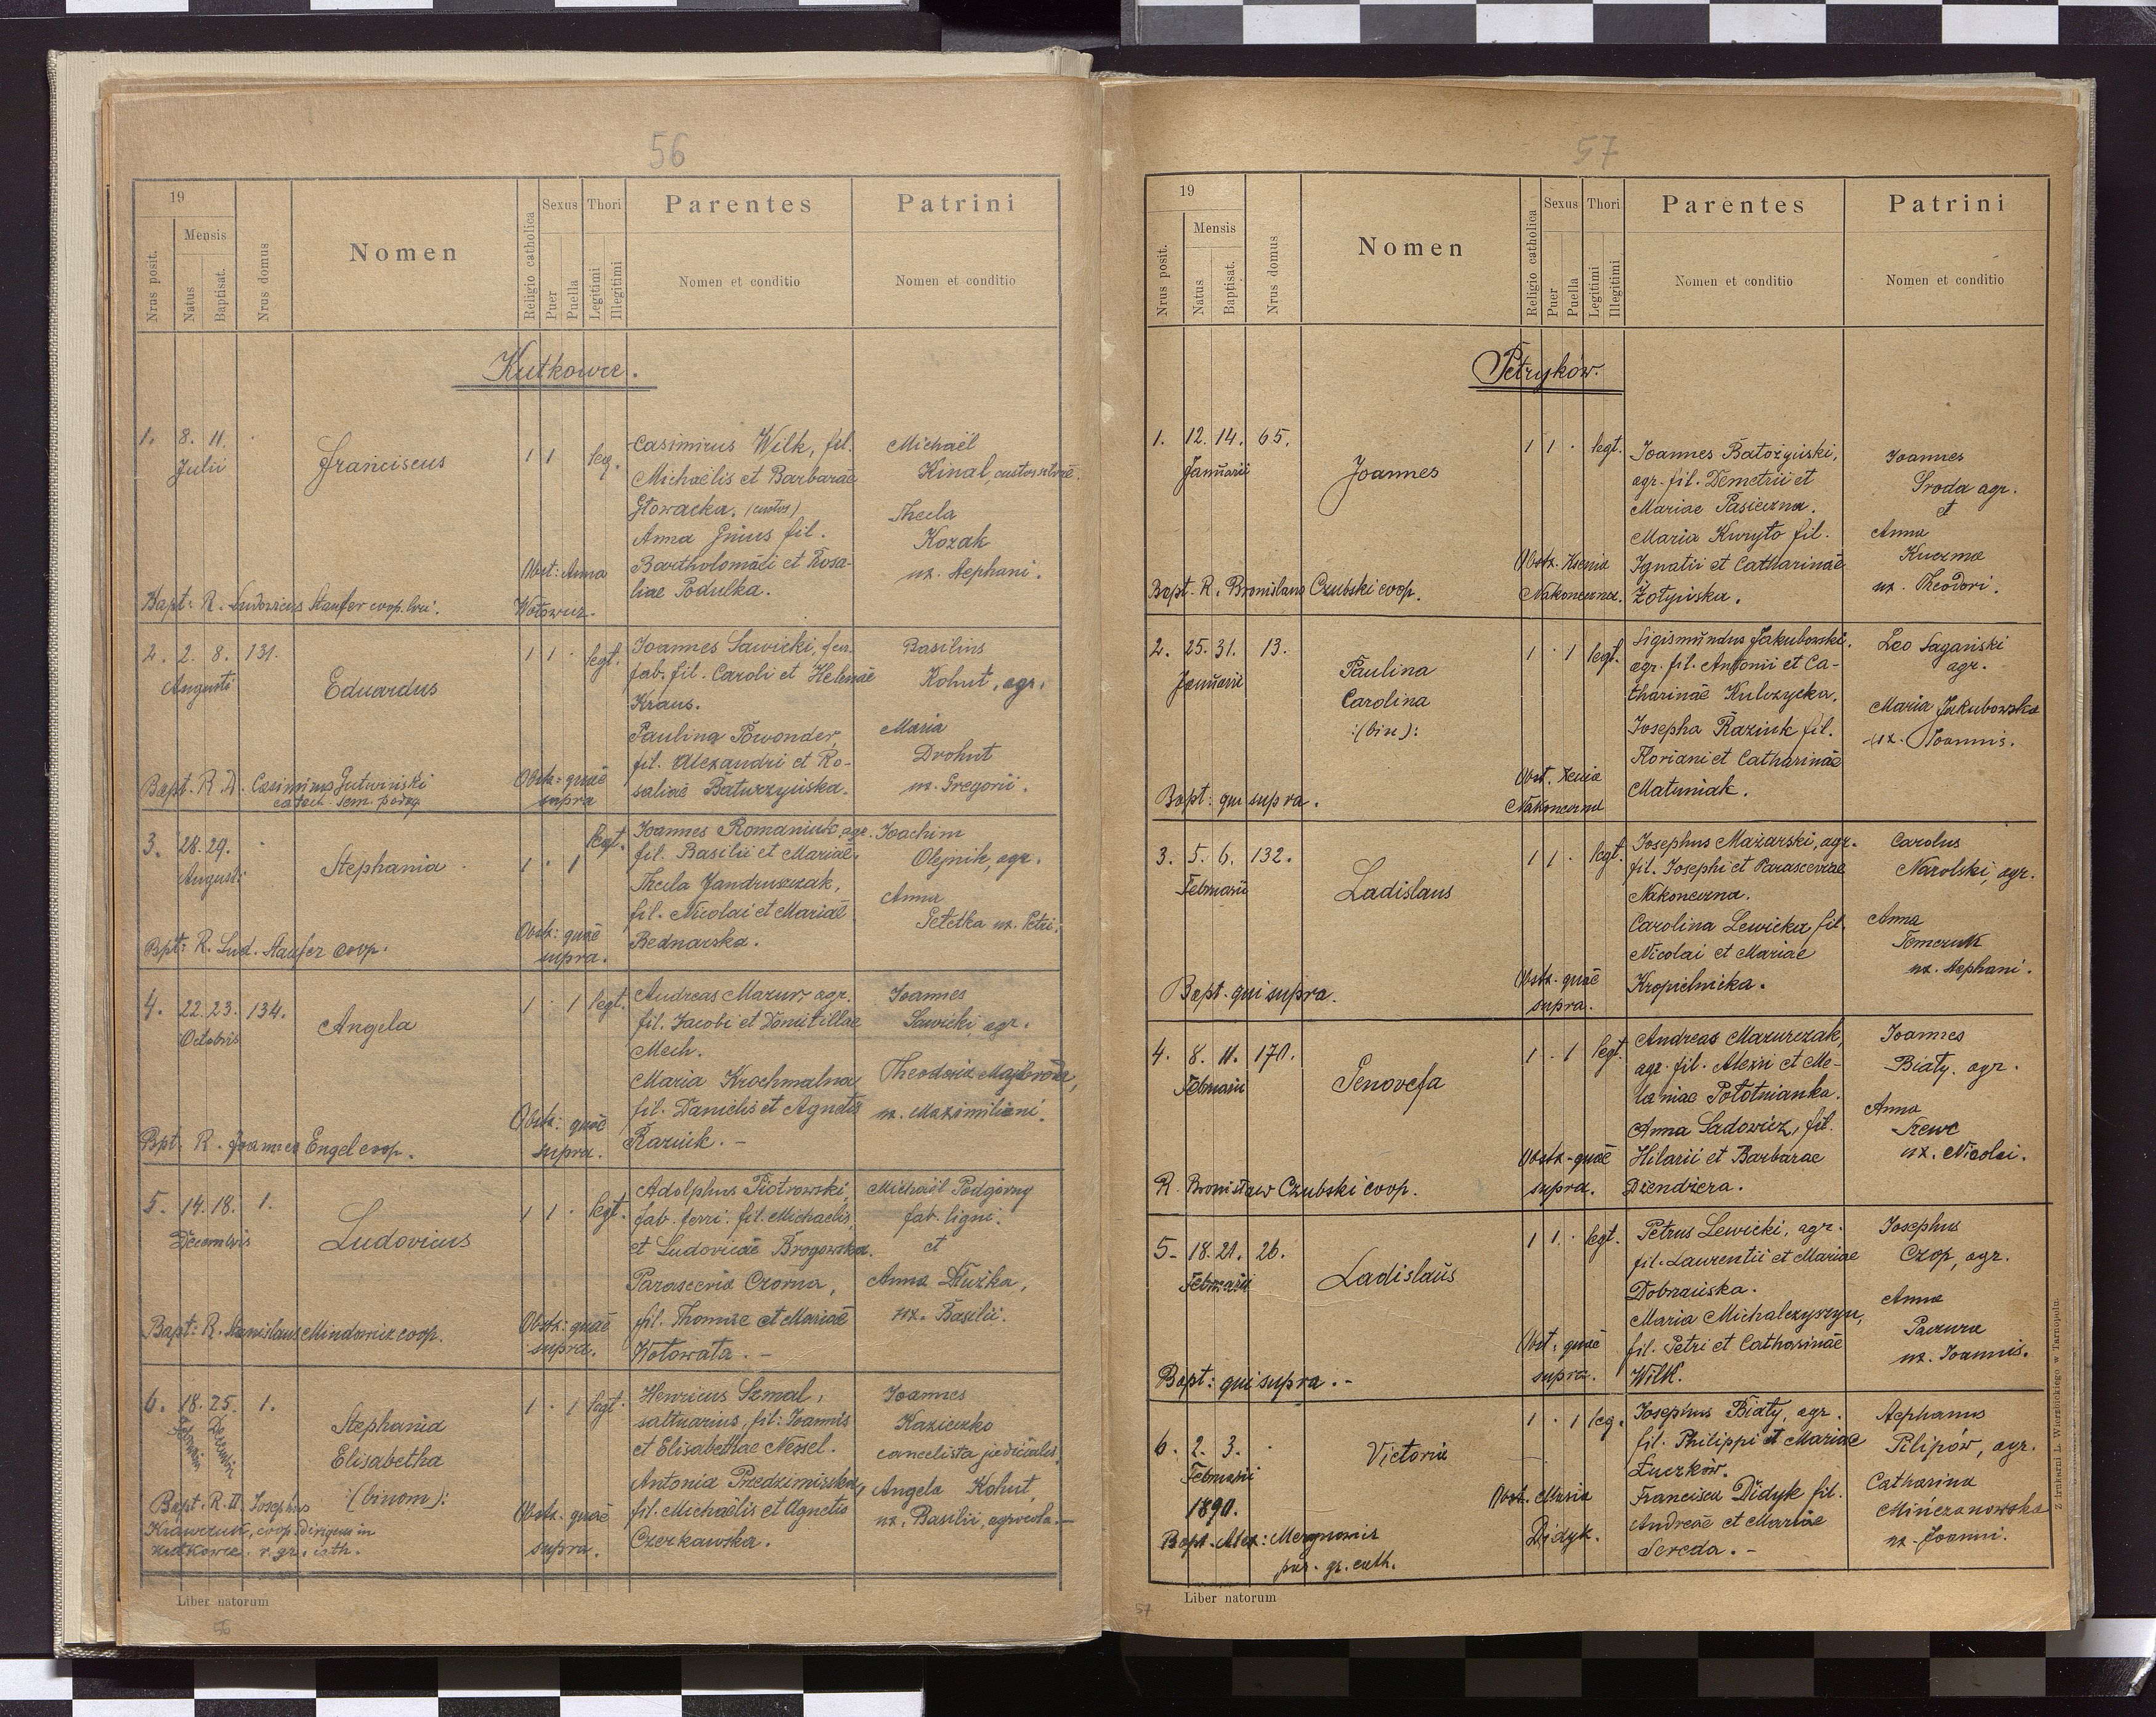 56
19
Nrus posit.
Mensis
Natus
Baptisat.
Nrus domus
Nomen
Religio catholica
Sexus
Puer
Puella
Thori
Legitimi
Illegitimi
Parentes
Nomen et conditio
Patrini
Nomen et conditio
Kutkowce.
1. 8. 11.
Julii
Franciscus
1 1 leg.
Casimirus Wilk, fil.
Michaëlis et Barbarae
Głowacka. (custos)
Anna Gnius fil.
Bartholomäei et Rosa-
liae Podulka.
Michaël
Kinal, custos silvae.
Thecla
Kozak
ux. Stephani.
Obst: Anna
Wołowicz.
Bapt: R. Ludovicus Staufer coop. loci.
2. 2. 8. 131.
Augusti
Eduardus
1 1 · legt.
Joannes Sawicki, ferr.
fab. fil. Caroli et Helenae
Kraus.
Paulina Powonder,
fil. Alexandri et Ro-
saliae Baturzyńska.
Basilius
Kohut, agr.
Maria
Drohut
ux. Gregorii.
Obstx: quae
supra
Bapt. R. D. Casimirus Gutwiński
catech. sem. pedag
3. 28. 29.
Augusti
Stephania
1 · 1 legt.
Joannes Romaniuk, agr.
fil. Basilii et Mariae.
Thecla Jandruszczak,
fil. Nicolai et Mariae
Bednarska.
Joachim
Olejnik, agr.
Anna
Petetka ux. Petri.
Obstx: quae
supra.
Bpt: R. Lud. Staufer coop.
4. 22. 23. 134.
Octobris
Angela
1 · 1 legt.
Andreas Mazur agr.
fil. Jacobi et Domitillae
Mech.
Maria Krochmalna
fil. Danielis et Agnetis
Raziuk. -
Joannes
Sawicki, agr.
Theodosia
ux. Maximiliani.
Obstx: quae
supra.
Bpt. R. Joannes Engel coop.
5. 14. 18. 1.
Decembris
Ludovicus
1 1 · legt.
Adolphus Piotrowski,
fab. ferri. fil. Michaelis
et Ludovicae Brogowska.
Parascevia Czorna,
fil. Thomae et Mariae
Kotowata. -
Michaël Podgórny
fab. ligni.
et
Anna Służka,
ux. Basilii.
Obstx: quae
supra.
Bapt: R. Stanislaus Mindowicz coop.
6. 18. 25. 1.
Decembris
Stephania
Elisabetha
:(binom):
1 · 1 legt.
Henricus Szmal,
saltuarius, fil: Joannis
et Elisabethae Nessel.
Antonia Przedzimirska,
fil. Michaëlis et Agnetis
Czerkawska.
Joannes
Kazieczko
cancelista judicialis.
Angela Kohut,
ux. Basilii, agricola. -
Obstx. quae
supra.
Bapt. R. D. Josephus
Krawczuk, coop. dirigens in
Kutkowce. r. gr. cath.
Liber natorum
56
57
19
Nrus posit.
Mensis
Natus
Baptisat.
Nrus domus
Nomen
Religio catholica
Sexus
Puer
Puella
Thori
Legitimi
Illegitimi
Parentes
Nomen et conditio
Patrini
Nomen et conditio
Petryków.
1. 12. 14. 65.
Januarii
Joannes
1 1 · legt.
Joannes Batożyński,
agr. fil. Demetrii et
Mariae Pasieczna.
Maria Kuryło fil.
Ignatii et Catharinae
Żołyńska.
Joannes
Sroda agr.
et
Anna
Kuczma
ux. Theodori.
Obstx. Ksenia
Nakoneczna.
Bapt. R. Bronislaus Czubski coop.
2. 25. 31. 13.
Januarii
Paulina
Carolina
:(bin):
1 · 1 legt.
Sigismundus Jakubowski.
agr. fil. Antonii et Ca-
tharinae Kulczycka.
Josepha Raziuk fil.
Floriani et Catharinae
Matuniak.
Leo Sagański
agr.
Maria Jakubowska
ux. Joannis.
Obst. Xenia
Nakoneczna
Bapt: qui supra.
3. 5. 6. 132.
Februarii
Ladislaus
1 1 · legt.
Josephus Mazarski, agr.
fil. Josephi et Parasceviae
Nakoneczna.
Carolina Lewicka fil.
Nicolai et Mariae
Kropielnicka.
Carolus
Narolski, agr.
Anna
Tomczuk
ux. Stephani.
Obstx. quae
supra.
Bapt. qui supra.
4. 8. 11. 170.
Februarii
Genovefa
1 · 1 legt.
Andreas Mazurczak,
agr. fil. Alexii et Me-
laniae Połotnianka.
Anna Sadowicz, fil.
Hilarii et Barbarae
Dzendzera.
Joannes
Biały. agr.
Anna
Szewc
ux. Nicolai.
Obstx. quae
supra.
R. Bronisław Czubski coop.
5. 18. 21. 26.
Februarii
Ladislaus
1 1 · legt.
Petrus Lewicki, agr.
fil. Laurentii et Mariae
Dobrzańska.
Maria Michalczyszyn,
fil. Petri et Catharinae
Wilk.
Josephus
Czop, agr.
Anna
Paczura
ux. Joannis.
Obst. quae
supra.
Bapt: qui supra. -
6. 2. 3.
Februarii
1890.
Victoria
1 · 1 leg.
Josephus Biały, agr.
fil. Philippi et Mariae
Łuczków.
Francisca Didyk fil.
Andreae et Mariae
Sereda. -
Stephanus
Pilipów, agr.
Catharina
Minczanowska
ux. Joanni.
Obst. Maria
Didyk.
Bapt. Alex:
par. gr. cath.
Liber natorum
57
Z drukarni L. Wierzbickiego w Tarnopolu.